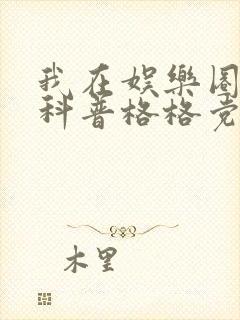 我在娱樂圈
科普格格党
木里